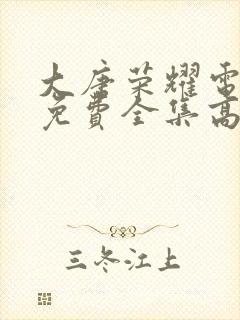 大唐荣耀電
免費全集高
三冬江上